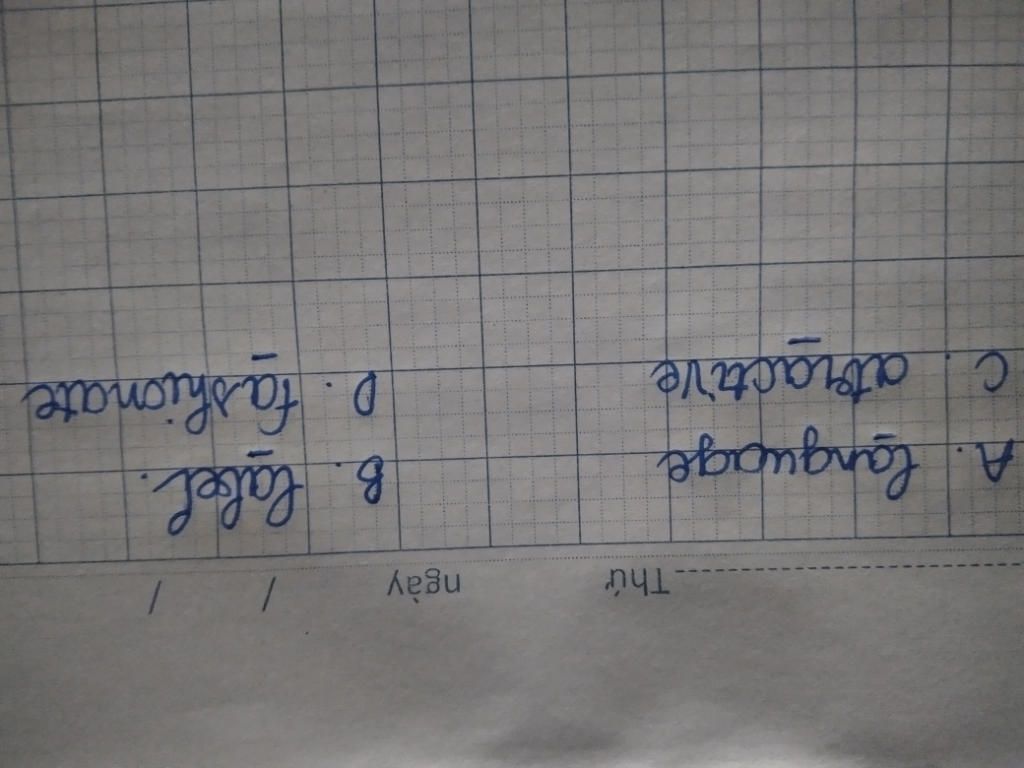 Thứ ngày / /
A. language B. label.
C. attractive D. fashionate